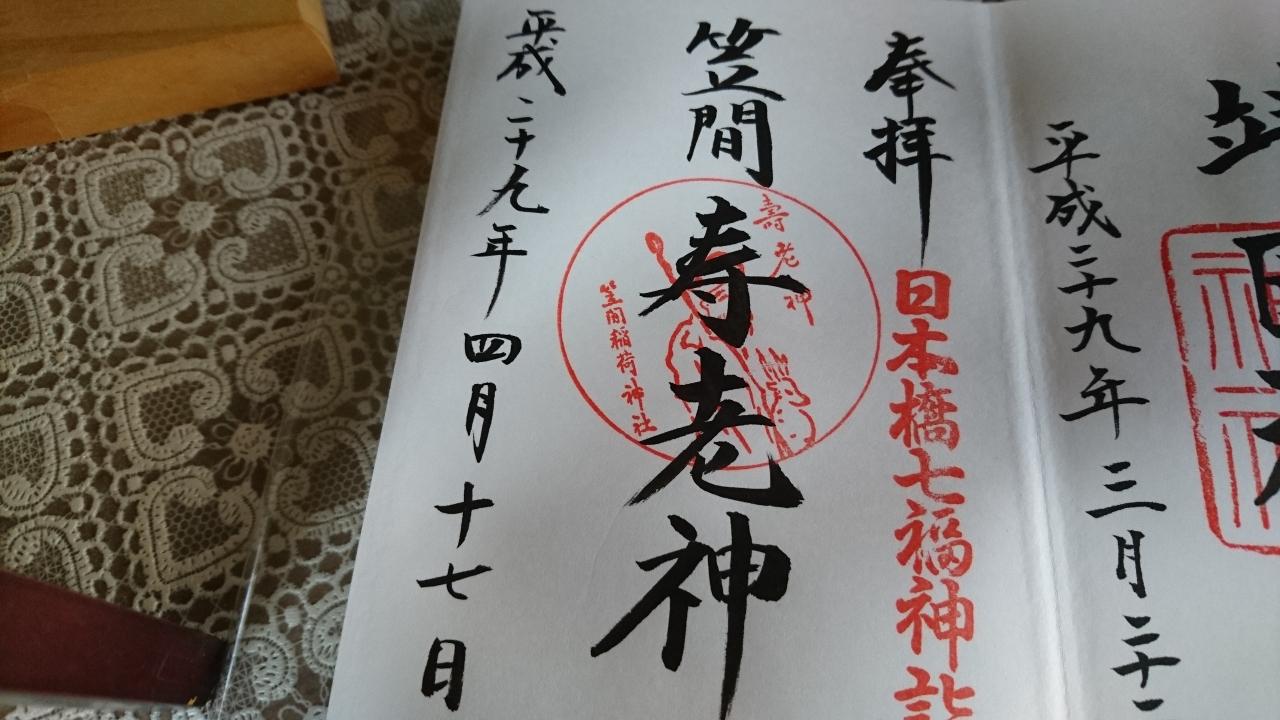 平成二十九年三月二十一
奉拝
日本橋七福神詣
笠間
寿老神
壽老神
笠間稲荷神社
平成二十九年四月十七日